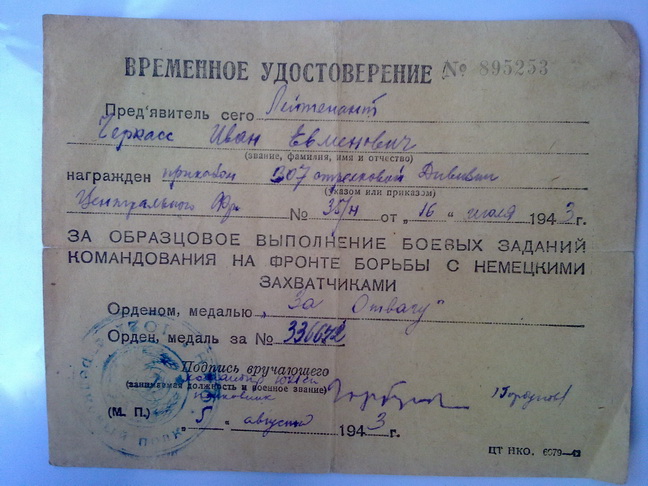 ВРЕМЕННОЕ УДОСТОВЕРЕНИЕ № 895253
Пред'явитель сего Лейтенант
Черкасс Иван Евменович
(звание, фамилия, имя и отчество)
награжден приказом 307 стрелковой Дивизии
(указом или приказом)
Центрального Фр. № 35/н от „ 16 “ июля 1943 г.
ЗА ОБРАЗЦОВОЕ ВЫПОЛНЕНИЕ БОЕВЫХ ЗАДАНИЙ
КОМАНДОВАНИЯ НА ФРОНТЕ БОРЬБЫ С НЕМЕЦКИМИ
ЗАХВАТЧИКАМИ
Орденом, медалью „За Отвагу“
Орден, медаль за № 336672
Подпись вручающего
(занимаемая должность и военное звание)
полковник
(М. П.)
„ 5 “ августа 1943 г.
ЦТ НКО.